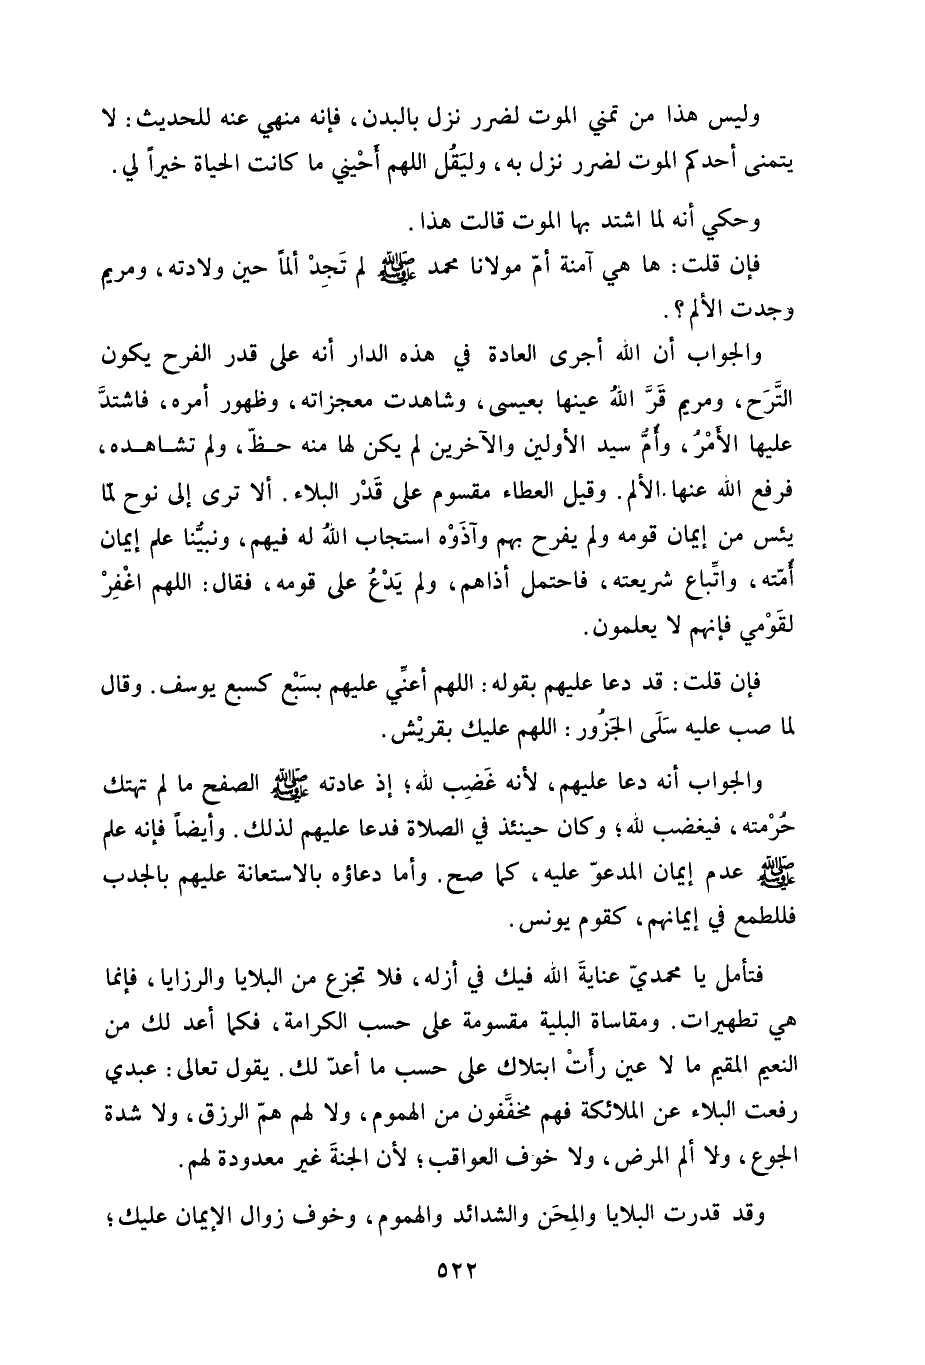 وليس هذا من تمني الموت لضرر نزل بالبدن، فإنه منهي عنه للحديث: لا
يتمنى أحدكم الموت لضرر نزل به، وليَقُل اللهم أَحْيني ما كانت الحياة خيراً لي.
وحكي أنه لما اشتد بها الموت قالت هذا.
فإن قلت: ها هي آمنة أمّ مولانا محمد ﷺ لم تَجِدْ ألماً حين ولادته، ومريم
وجدت الألم؟.
والجواب أن الله أجرى العادة في هذه الدار أنه على قدر الفرح يكون
التَّرَح، ومريم قَرَّ اللهُ عينها بعيسى، وشاهدت معجزاته، وظهور أمره، فاشتدَّ
عليها الأَمْرُ، وأُمُّ سيد الأولين والآخرين لم يكن لها منه حـظّ، ولم تشـاهـده،
فرفع الله عنها الألم. وقيل العطاء مقسوم على قَدْر البلاء. ألا ترى إلى نوح لمّا
يئس من إيمان قومه ولم يفرح بهم وآذَوْه استجاب اللهُ له فيهم، ونبيُّنا علم إيمان
أُمّته، واتِّباع شريعته، فاحتمل أذاهم، ولم يَدْعُ على قومه، فقال: اللهم اغْفِرْ
لقَوْمي فإنهم لا يعلمون.
فإن قلت: قد دعا عليهم بقوله: اللهم أعنِّي عليهم بسَبْع كسبع يوسف. وقال
لما صب عليه سَلَى الجَزُور: اللهم عليك بقريْش.
والجواب أنه دعا عليهم، لأنه غَضِب لله؛ إذ عادته ﷺ الصفح ما لم تهتك
حُرْمته، فيغضب لله؛ وكان حينئذ في الصلاة فدعا عليهم لذلك. وأيضاً فإنه علم
ﷺ عدم إيمان المدعوّ عليه، كما صح. وأما دعاؤه بالاستعانة عليهم بالجدب
فللطمع في إيمانهم، كقوم يونس.
فتأمل يا محمديّ عنايةَ الله فيك في أزله، فلا تجزع من البلايا والرزايا، فإنما
هي تطهيرات. ومقاساة البلية مقسومة على حسب الكرامة، فكما أعد لك من
النعيم المقيم ما لا عين رأَتْ ابتلاك على حسب ما أعدّ لك. يقول تعالى: عبدي
رفعت البلاء عن الملائكة فهم مخفَّفون من الهموم، ولا لهم همّ الرزق، ولا شدة
الجوع، ولا ألم المرض، ولا خوف العواقب؛ لأن الجنةَ غير معدودة لهم.
وقد قدرت البلايا والمِحَن والشدائد والهموم، وخوف زوال الإيمان عليك؛
٥٢٢